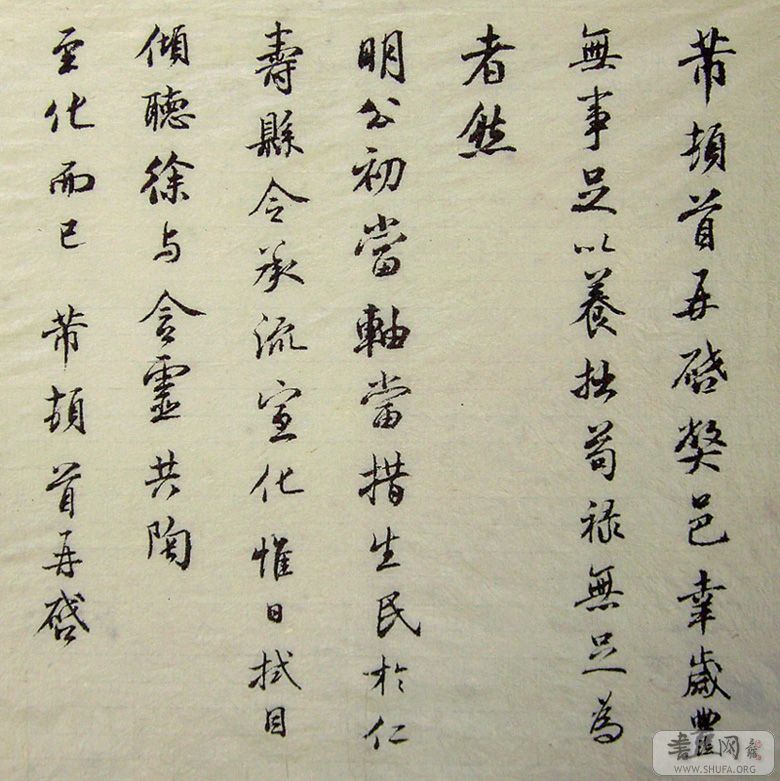 芾頓首再啓弊邑幸歲豐
無事足以養拙苟祿無足為
者然
明公初當軸當措生民於仁
壽縣令承流宣化惟日拭目
傾聽徐与含靈共陶
至化而已 芾頓首再啓
書法网
WWW.SHUFA.ORG